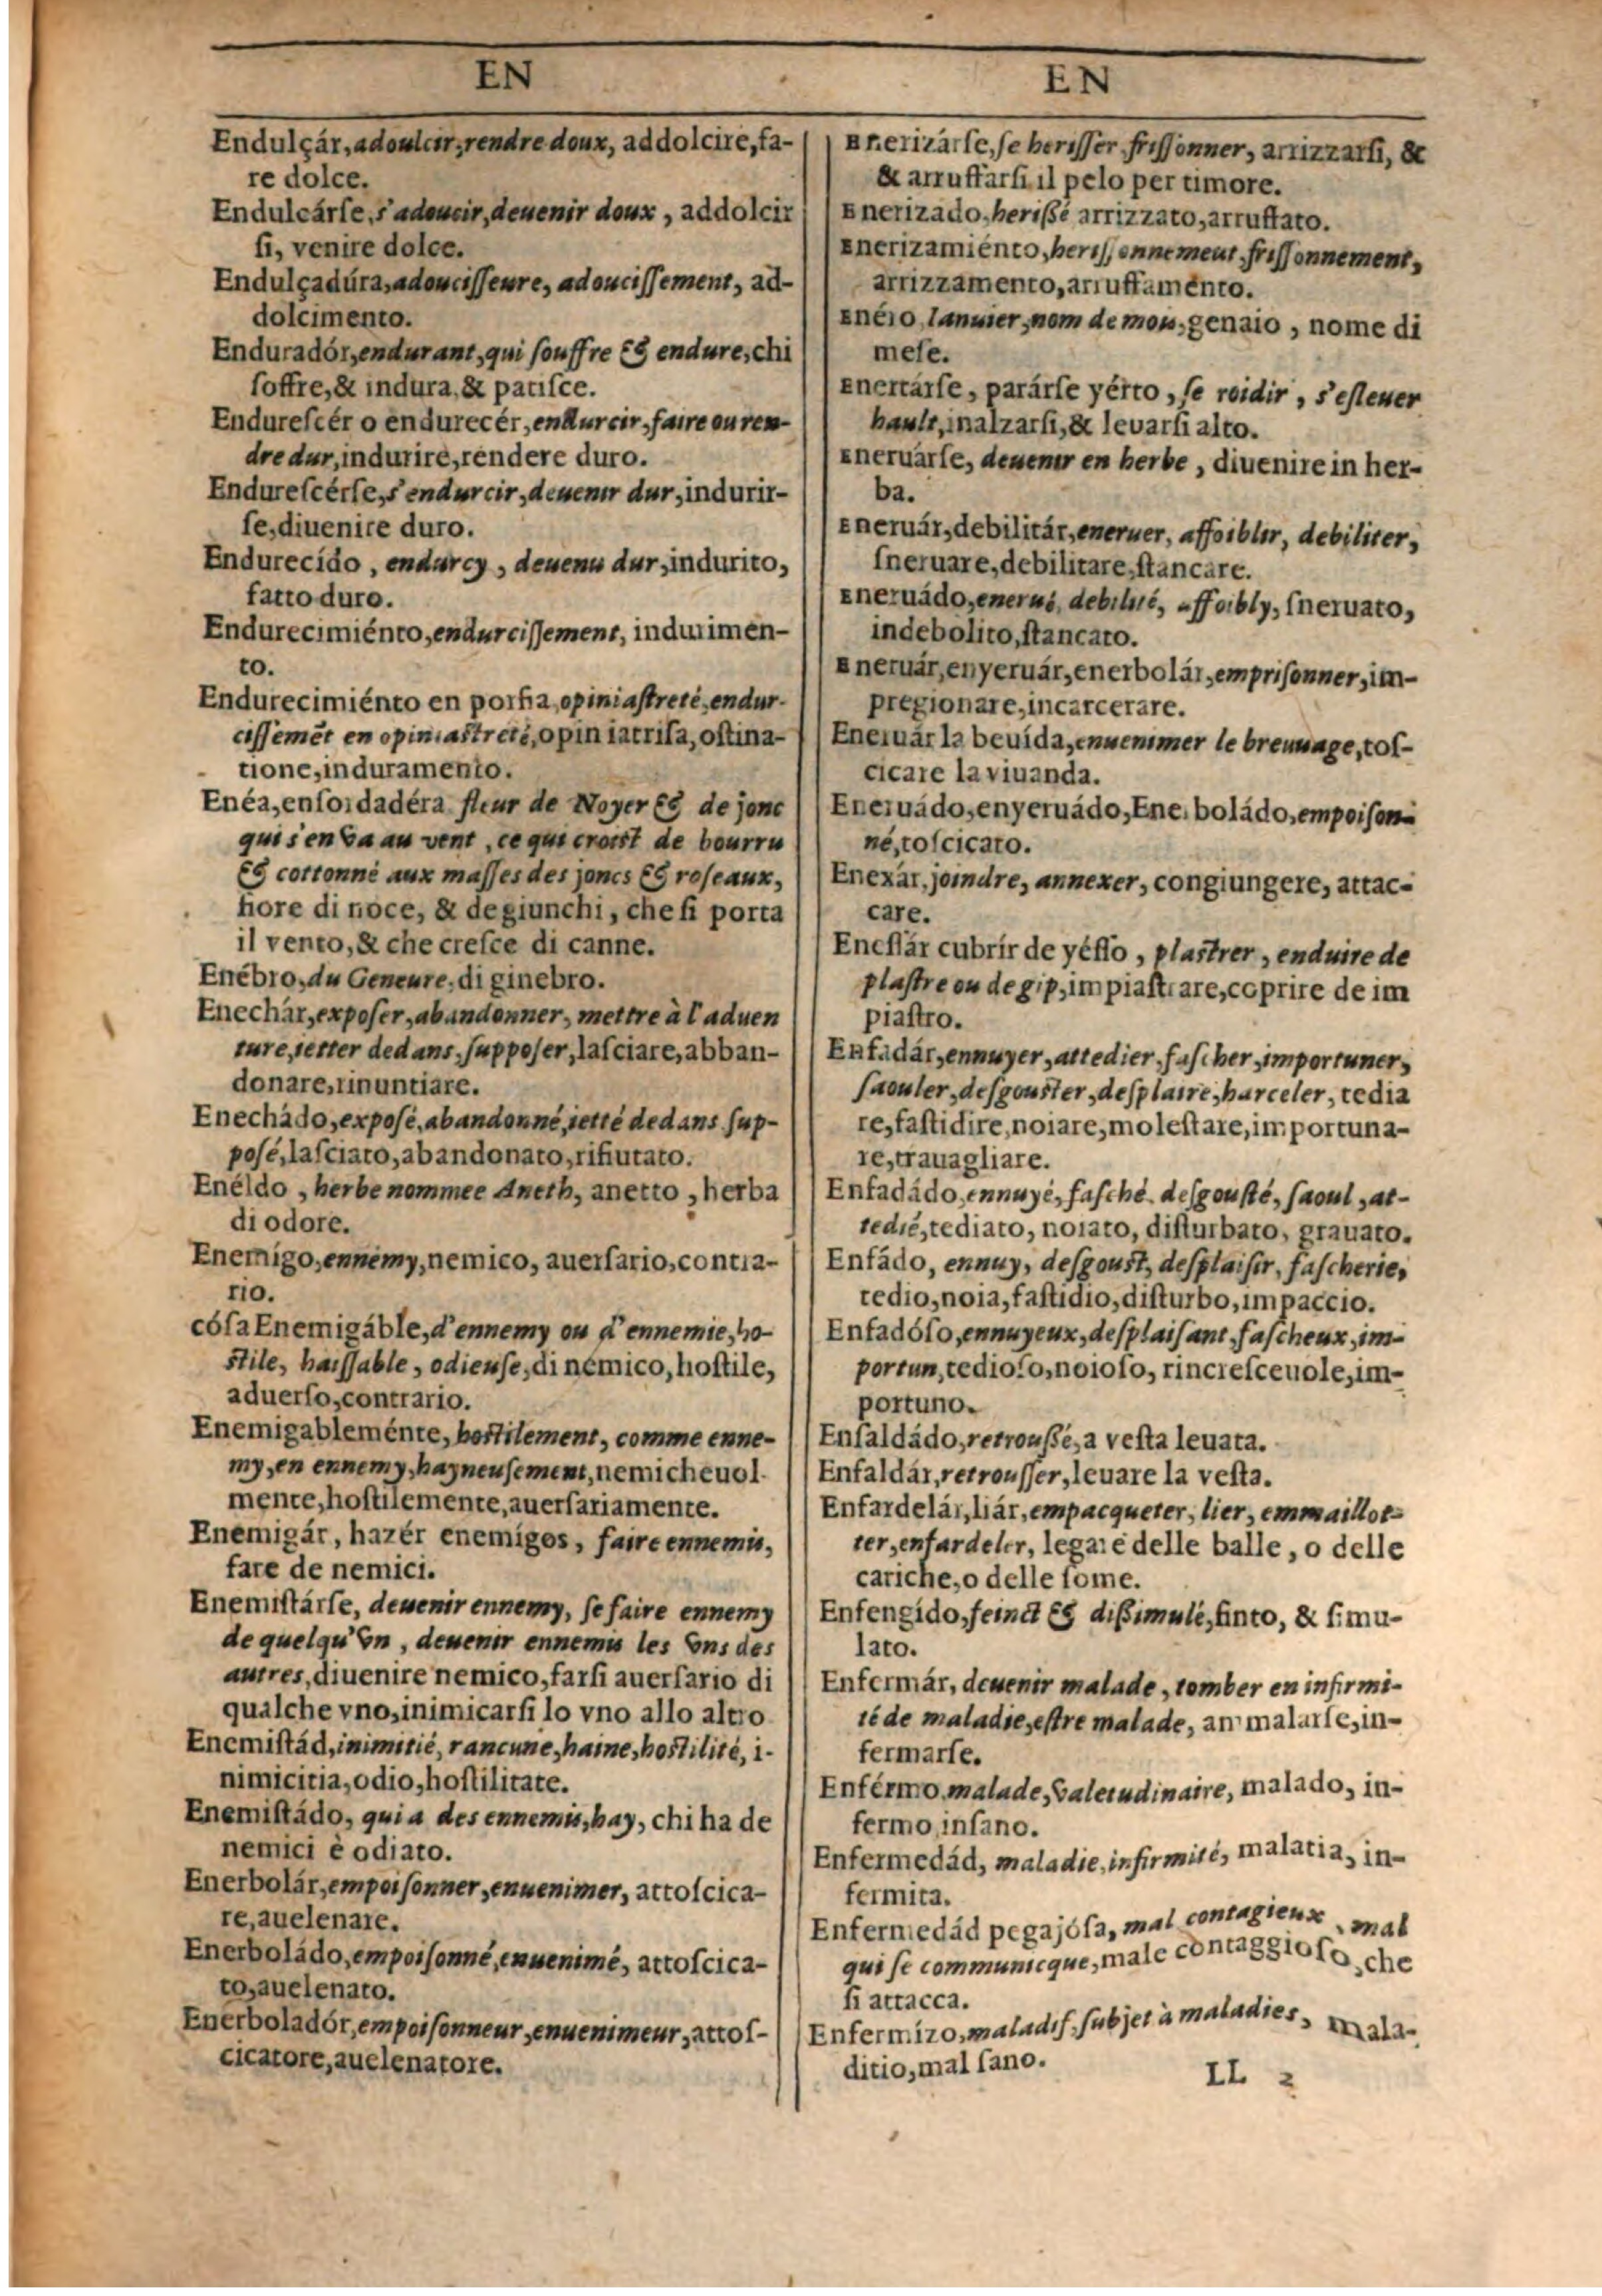 EN
Endulçár, adoulcir, rendre doux, addolcire, fa-
re dolce.
Endulcárſe, s'adoucir, deuenir doux, addolcir
ſi, venire dolce.
Endulçadúra, adouciſſeure, adouciſſement, ad-
dolcimento.
Enduradór, endurant, qui ſouffre & endure, chi
ſoffre, & indura, & patiſce.
Endureſcér o endurecér, endurcir, faire ou ren-
dre dur, indurire, rendere duro.
Endureſcérſe, s'endurcir, deuenir dur, indurir-
ſe, diuenire duro.
Endurecído, endurcy, deuenu dur, indurito,
fatto duro.
Endurecimiénto, endurciſſement, indurimen-
to.
Endurecimiénto en porfia, opiniaſtreté, endur-
ciſſemẽt en opiniaſtreté, opiniatriſa, oſtina-
tione, induramento.
Enéa, enſordadéra fleur de Noyer & de jonc
qui s'en va au vent, ce qui croiſt de bourru
& cottonné aux maſſes des joncs & roſeaux,
fiore di noce, & de giunchi, che ſi porta
il vento, & che creſce di canne.
Enébro, du Geneure, di ginebro.
Enechár, expoſer, abandonner, mettre à l'aduen
ture, ietter dedans, ſuppoſer, laſciare, abban-
donare, rinuntiare.
Enechádo, expoſé, abandonné, ietté dedans ſup-
poſé, laſciato, abandonato, rifiutato.
Enéldo, herbe nommee Aneth, anetto, herba
di odore.
Enemígo, ennemy, nemico, auerſario, contra-
rio.
cóſa Enemigáble, d'ennemy ou d'ennemie, ho-
ſtile, haiſſable, odieuſe, di nemico, hoſtile,
aduerſo, contrario.
Enemigableménte, hoſtilement, comme enne-
my, en ennemy, hayneuſement, nemicheuol
mente, hoſtilemente, auerſariamente.
Enemigár, hazér enemígos, faire ennemis,
fare de nemici.
Enemiſtárſe, deuenir ennemy, ſe faire ennemy
de quelqu'vn, deuenir ennemis les vns des
autres, diuenire nemico, farſi auerſario di
qualche vno, inimicarſi lo vno allo altro
Enemiſtád, inimitié, rancune, haine, hoſtilité, i-
nimicitia, odio, hoſtilitate.
Enemiſtádo, qui a des ennemis, hay, chi ha de
nemici è odiato.
Enerbolár, empoiſonner, enuenimer, attoſcica-
re, auelenare.
Enerboládo, empoiſonné, enuenimé, attoſcica-
to, auelenato.
Enerboladór, empoiſonneur, enuenimeur, attoſ-
cicatore, auelenatore.
EN
Enerizárſe, ſe heriſſer, friſſonner, arrizzarſi, &
& arruffarſi il pelo per timore.
Enerizado, heriſſé arrizzato, arruffato.
Enerizamiénto, heriſſonnement, friſſonnement,
arrizzamento, arruffamento.
Enéro Ianuier, nom de mois, genaio, nome di
meſe.
Enertárſe, parárſe yérto, ſe roidir, s'eſleuer
hault, inalzarſi, & leuarſi alto.
Eneruárſe, deuenir en herbe, diuenire in her-
ba.
Eneruár, debilitár, eneruer, affoiblir, debiliter,
ſneruare, debilitare, ſtancare.
Eneruádo, enerué, debilité, affoibly, ſneruato,
indebolito, ſtancato.
Eneruár, enyeruár, enerbolár, empriſonner, im-
pregionare, incarcerare.
Eneruár la beuída, enuenimer le breuuage, toſ-
cicare la viuanda.
Eneruádo, enyeruádo, Enerboládo, empoiſon-
né, toſcicato.
Enexár, joindre, annexer, congiungere, attac-
care.
Eneſſár cubrír de yéſſo, plaſtrer, enduire de
plaſtre ou de gip, impiaſtrare, coprire de im
piaſtro.
Enfadár, ennuyer, attedier, faſcher, importuner,
ſaouler, deſgouſter, deſplaire, harceler, tedia
re, faſtidire, noiare, moleſtare, importuna-
re, trauagliare.
Enfadádo, ennuyé, faſché deſgouſté, ſaoul, at-
tedié, tediato, noiato, diſturbato, grauato.
Enfádo, ennuy, deſgouſt, deſplaiſir, faſcherie,
tedio, noia, faſtidio, diſturbo, impaccio.
Enfadóſo, ennuyeux, deſplaiſant, faſcheux, im-
portun, tedioſo, noioſo, rincreſceuole, im-
portuno.
Enfaldádo, retrouſſé, a veſta leuata.
Enfaldár, retrouſſer, leuare la veſta.
Enfardelár, liár, empacqueter, lier, emmaillot-
ter, enfardeler, legare delle balle, o delle
cariche, o delle ſome.
Enfengído, feinct & diſſimulé, finto, & ſimu-
lato.
Enfermár, deuenir malade, tomber en infirmi-
té de maladie, eſtre malade, ammalarſe, in-
fermarſe.
Enférmo malade, valetudinaire, malado, in-
fermo inſano.
Enfermedád, maladie, infirmité, malatia, in-
fermita.
Enfermedád pegajóſa, mal contagieux, mal
qui ſe communicque, male contaggioſo, che
ſi attacca.
Enfermízo, maladif, ſubjet à maladies, mala-
ditio, mal ſano.
LL 2